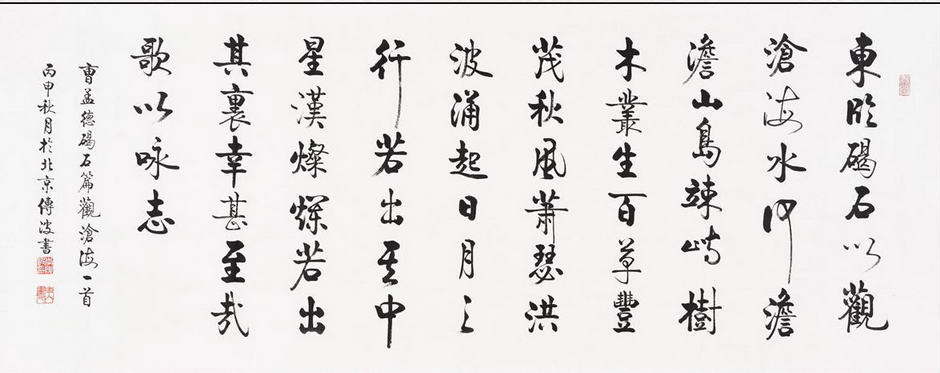 東臨碣石以觀
滄海水何澹
澹山島竦峙樹
木叢生百草豐
茂秋風蕭瑟洪
波涌起日月之
行若出其中
星漢燦爛若出
其裏幸甚至哉
歌以咏志
曹孟德碣石篇觀滄海一首
丙申秋月於北京傳波書